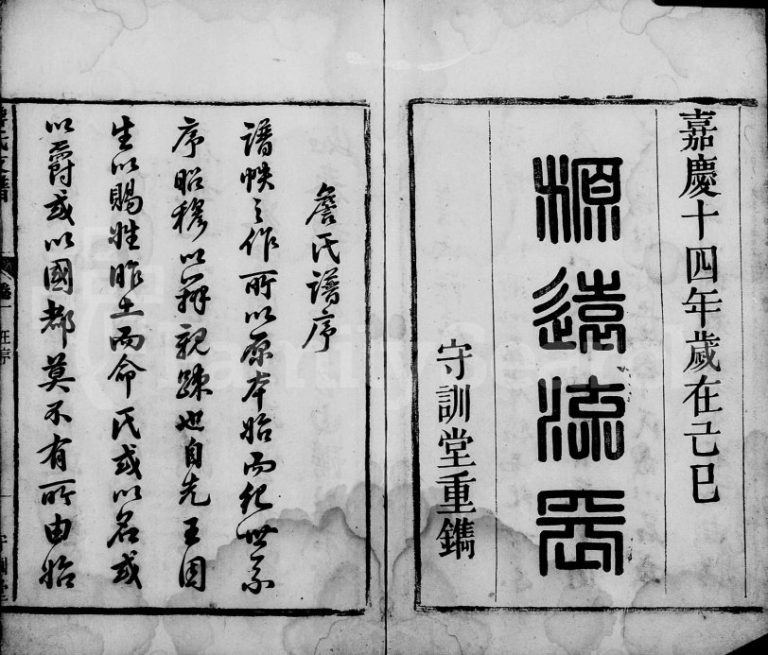 嘉慶十四年歲在己巳
源遠流長
守訓堂重鐫
詹氏譜序
譜帙之作所以原本始而紀世系
序昭穆以辨親疎也自先王因
生以賜姓胙土而命氏或以名或
以爵或以國都莫不有所由始
氏支譜
卷一 序
守訓堂
FamilySearch